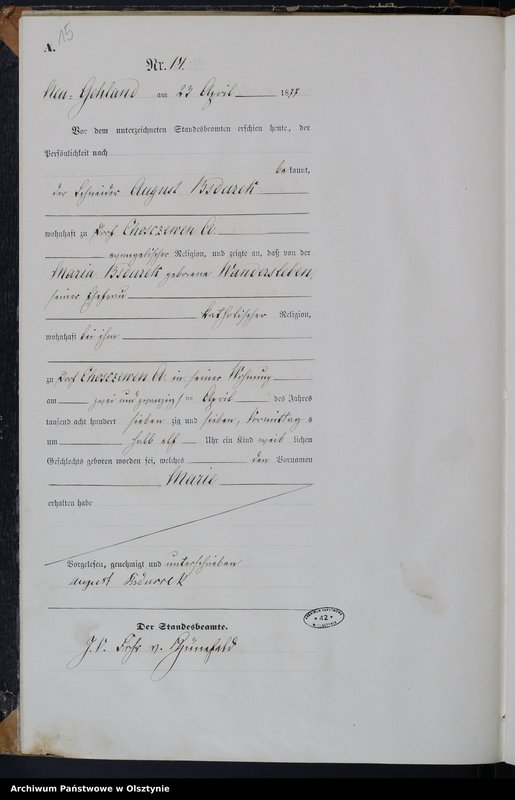 A.
15
Nr. 14.
Neu-Gehland am 23 April 1877
Vor dem unterzeichneten Standesbeamten erschien heute, der
Persönlichkeit nach
bekannt,
der Schneider August Bsdurek
wohnhaft zu Dorf Choszewen A.
evangelischer Religion, und zeigte an, daß von der
Maria Bsdurek geborene Wandersleben,
seiner Ehefrau
katholischer Religion,
wohnhaft bei ihm
zu Dorf Choszewen A. in seiner Wohnung
am zwei und zwanzigsten April des Jahres
tausend acht hundert siebenzig und sieben, Vormittags
um halb elf Uhr ein Kind weiblichen
Geschlechts geboren worden sei, welches den Vornamen
Marie
erhalten habe
Vorgelesen, genehmigt und unterschrieben
August Bsdurrek
Der Standesbeamte.
J. V. Fhr. v.
42
Archiwum Państwowe w Olsztynie